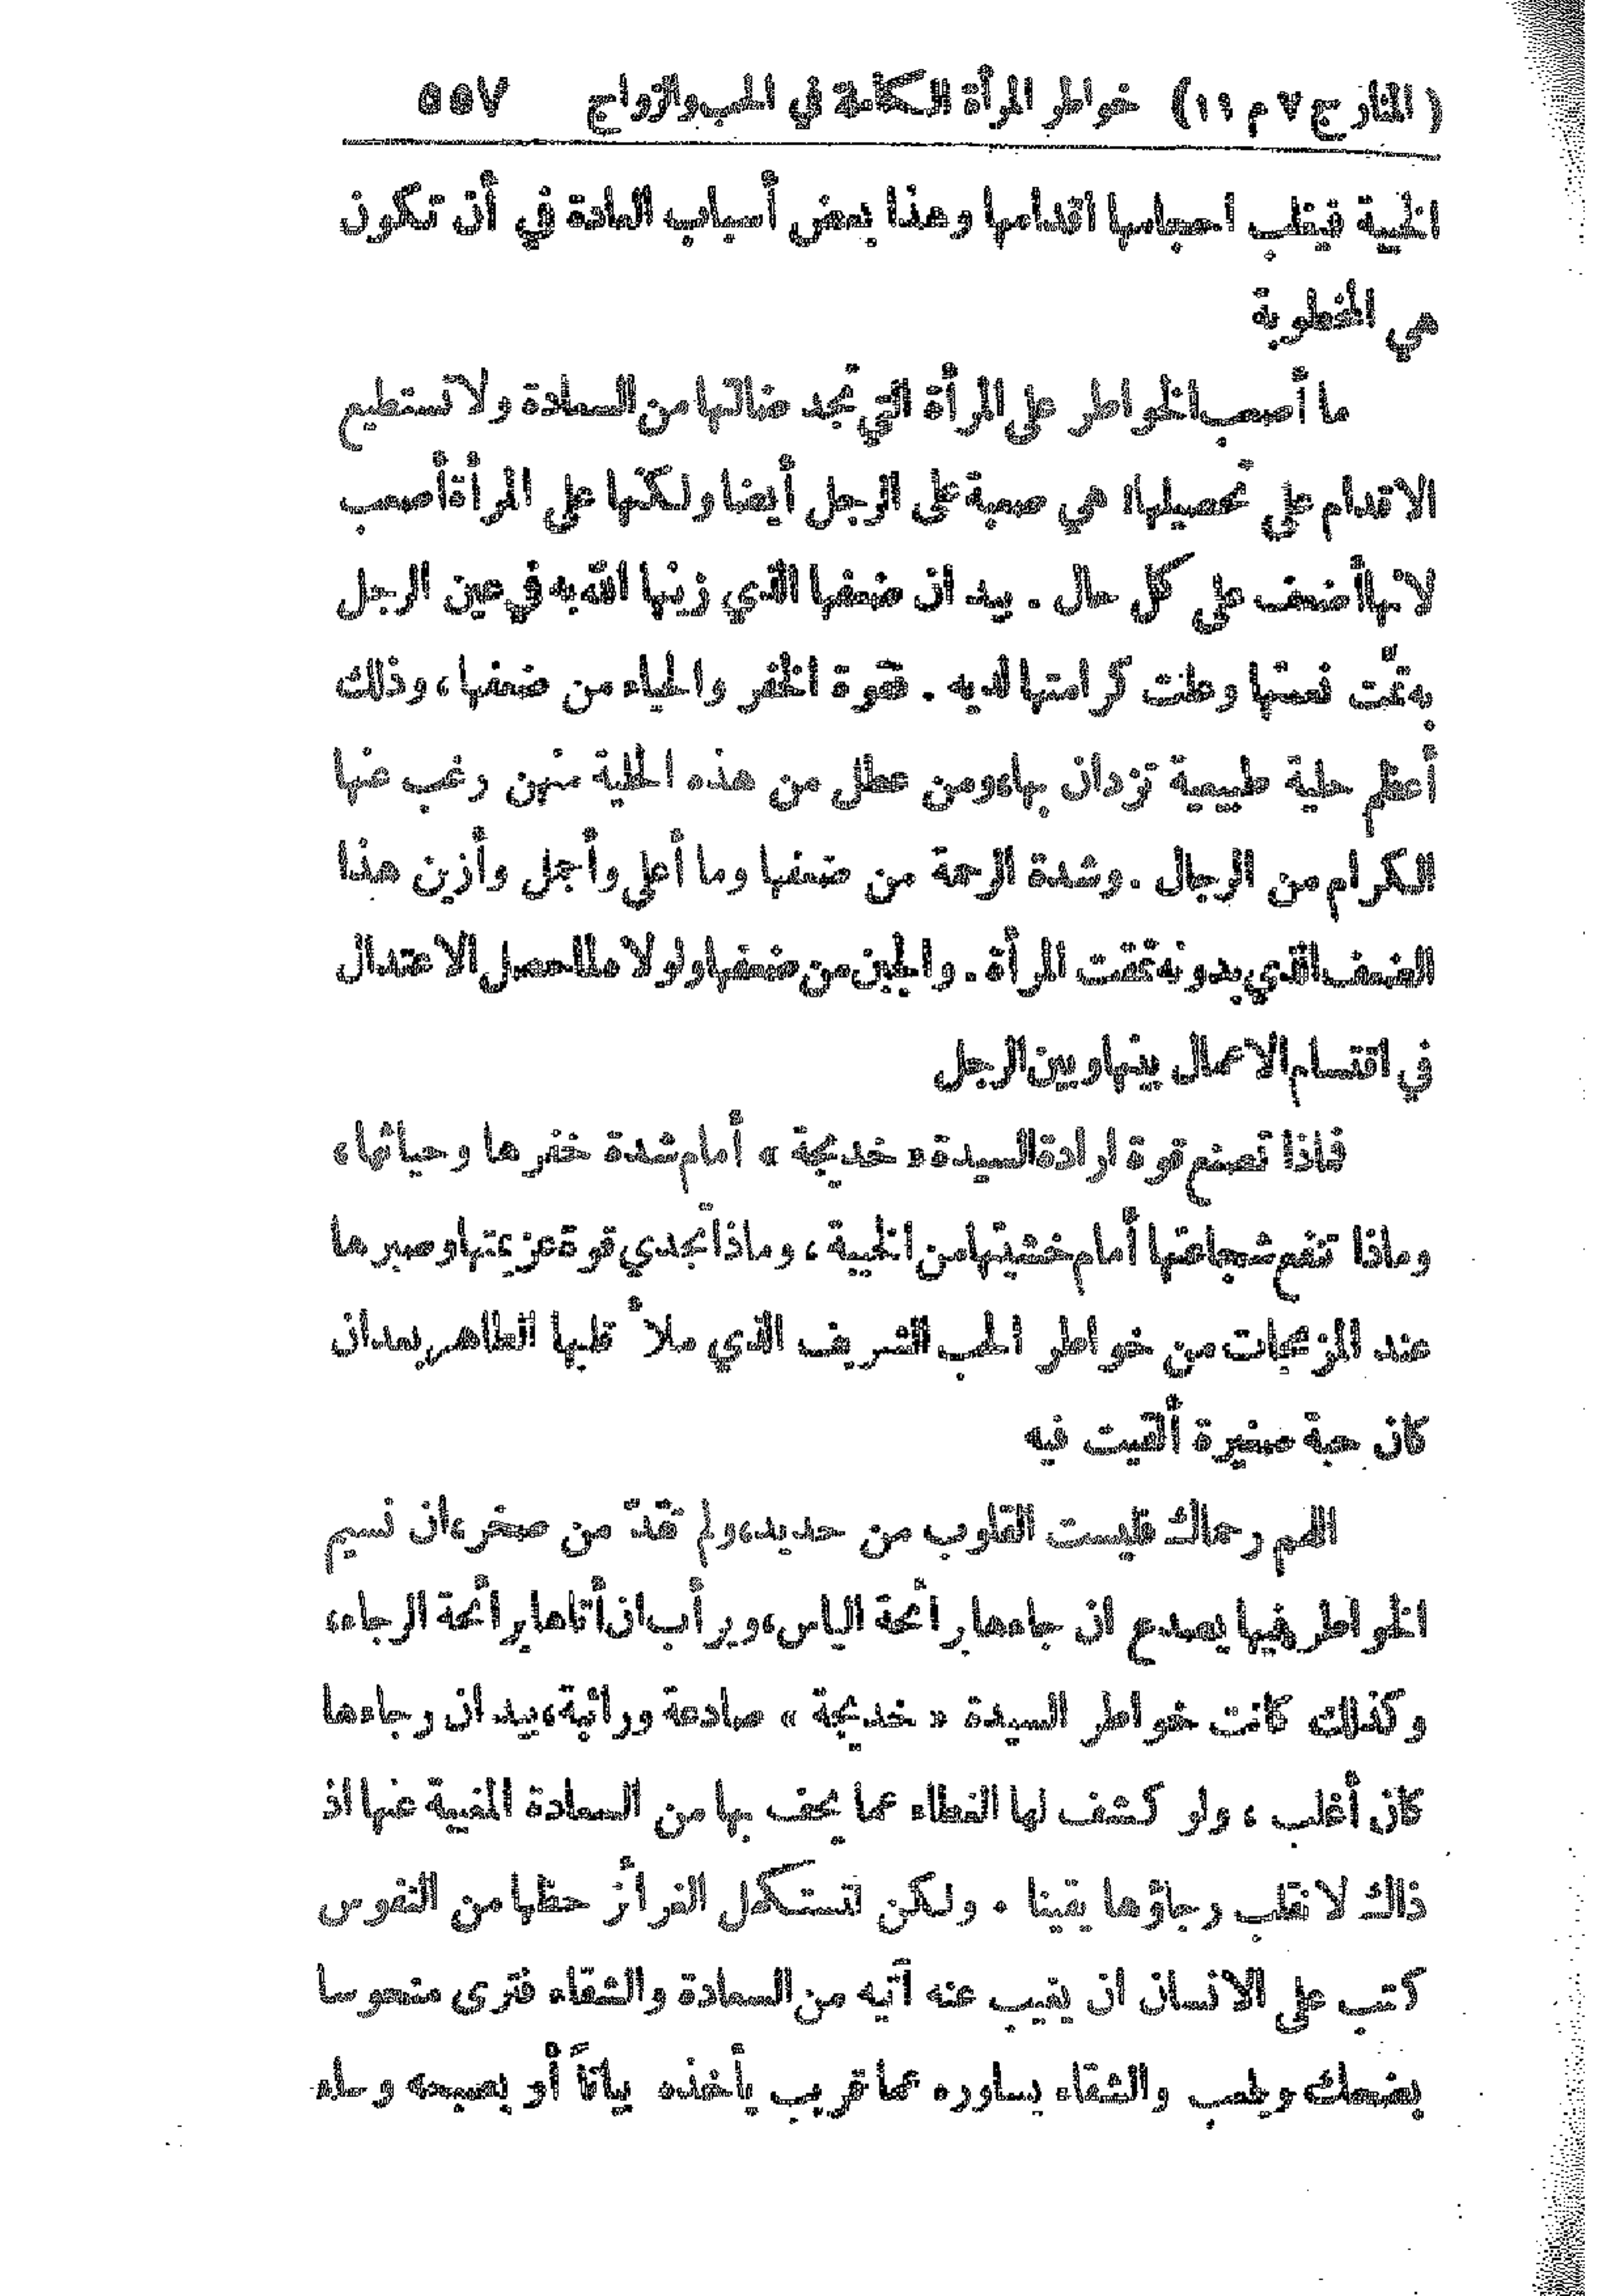 ( المنار ج ٧ م ١١ ) خواطر المرأة الكاملة في الحب والزواج ٥٥٧
الخيبة فيغلب احجامها اقدامها وهذا بعض أسباب العادة في أن تكون
هي المخطوبة
ما أصعب الخواطر على المرأة التي تجد ضالتها من السعادة ولا تستطيع
الاقدام على تحصيلها، هي صعبة على الرجل أيضا ولكنها على المرأة أصعب
لانها أضعف على كل حال . بيد ان ضعفها الذي زينها الله به في عين الرجل
به تمّت نعمتها وعلت كرامتها لديه . فقوة الخفر والحياء من ضعفها ، وذلك
أعظم حلية طبيعية تزدان بها، ومن عطل من هذه الحلية منهن رغب عنها
الكرام من الرجال . وشدة الرحمة من ضعفها وما أعلى وأجمل وأزين هذا
الضعف الذي بدونه تمقت المرأة . والجبن من ضعفها ولولاه لما حصل الاعتدال
في اقتسام الاعمال بينها وبين الرجل
فماذا تصنع قوة ارادة السيدة « خديجة » أمام شدة خفرها وحيائها ،
وماذا تنفع شجاعتها أمام خشيتها من الخيبة ، وماذا تجدي قوة عزيمتها وصبرها
عند المزعجات من خواطر الحب الشريف الذي ملأ قلبها الطاهر بعد ان
كان حبة صغيرة ألقيت فيه
اللهم رحماك فليست القلوب من حديد، ولم تقدّ من صخر، ان نسيم
الخواطر فيها يصدع ان جاءها برائحة اليأس، ويرأب ان أتاها برائحة الرجاء،
وكذلك كانت خواطر السيدة « خديجة » صادعة ورائبة، بيد ان رجاءها
كان أغلب ، ولو كشف لها الغطاء عما يحف بها من السعادة المغيبة عنها اذ
ذاك لانقلب رجاؤها يقينا . ولكن لتستكمل الغرائز حظها من النفوس
كتب على الانسان ان يغيب عنه آتيه من السعادة والشقاء فترى منحوسا
يضحك ويلعب والشقاء يساوره عما قريب يأخذه بياتاً أو يصبحه وساء